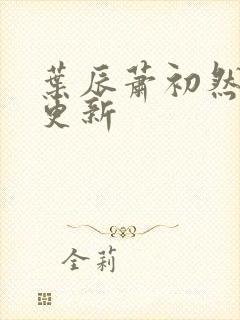 葉辰蕭初然
更新
全莉